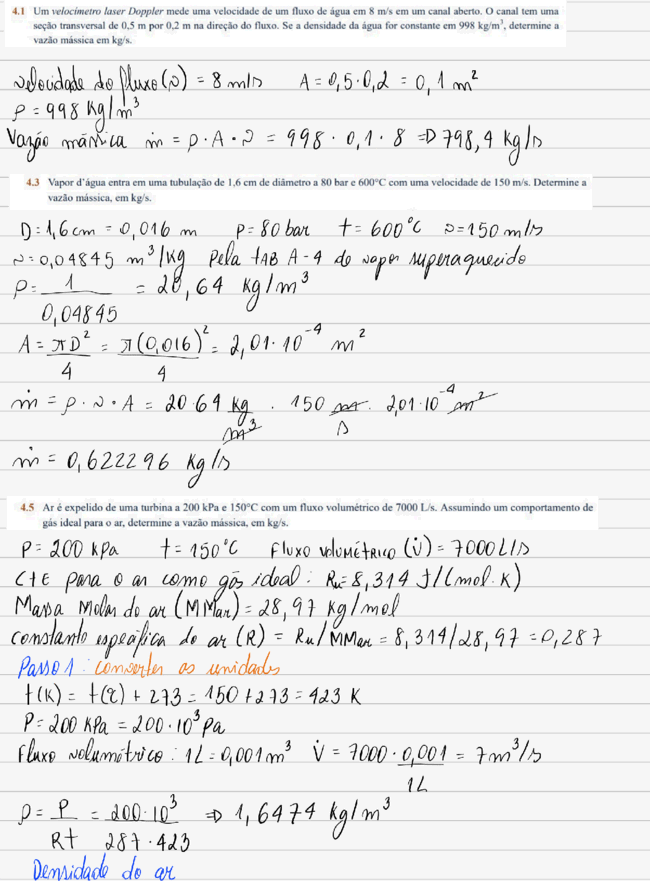 4.1 Um velocímetro laser Doppler mede uma velocidade de um fluxo de água em 8 m/s em um canal aberto. O canal tem uma
seção transversal de 0,5 m por 0,2 m na direção do fluxo. Se a densidade da água for constante em 998 kg/m³, determine a
vazão mássica em kg/s.
velocidade do fluxo (v) = 8 m/s A = 0,5 · 0,2 = 0,1 m²
ρ = 998 Kg/m³
Vazão mássica ṁ = ρ · A · v = 998 · 0,1 · 8 ⇒ 798,4 Kg/s
4.3 Vapor d'água entra em uma tubulação de 1,6 cm de diâmetro a 80 bar e 600°C com uma velocidade de 150 m/s. Determine a
vazão mássica, em kg/s.
D = 1,6 cm = 0,016 m P = 80 bar t = 600°C v = 150 m/s
v = 0,04845 m³/Kg pela tAB A-4 de vapor superaquecido
ρ = 1/0,04845 = 20,64 kg/m³
A = πD²/4 = π(0,016)²/4 = 2,01 · 10⁻⁴ m²
ṁ = ρ · v · A = 20.64 kg/m³ · 150 m/s · 2,01 · 10⁻⁴ m²
ṁ = 0,622296 Kg/s
4.5 Ar é expelido de uma turbina a 200 kPa e 150°C com um fluxo volumétrico de 7000 L/s. Assumindo um comportamento de
gás ideal para o ar, determine a vazão mássica, em kg/s.
P = 200 kPa t = 150°C Fluxo volumétrico (V̇) = 7000 L/s
CtE para o ar como gás ideal: Ru = 8,314 J/(mol.K)
Massa Molar do ar (MMar) = 28,97 kg/mol
constante específica do ar (R) = Ru/MMar = 8,314/28,97 = 0,287
Passo 1: converter as unidades
t(K) = t(°C) + 273 = 150 + 273 = 423 K
P = 200 KPa = 200 · 10³ Pa
Fluxo volumétrico: 1L = 0,001 m³ V̇ = 7000 · 0,001/1L = 7 m³/s
ρ = P/Rt = 200 · 10³/287 · 423 ⇒ 1,6474 kg/m³
Densidade do ar